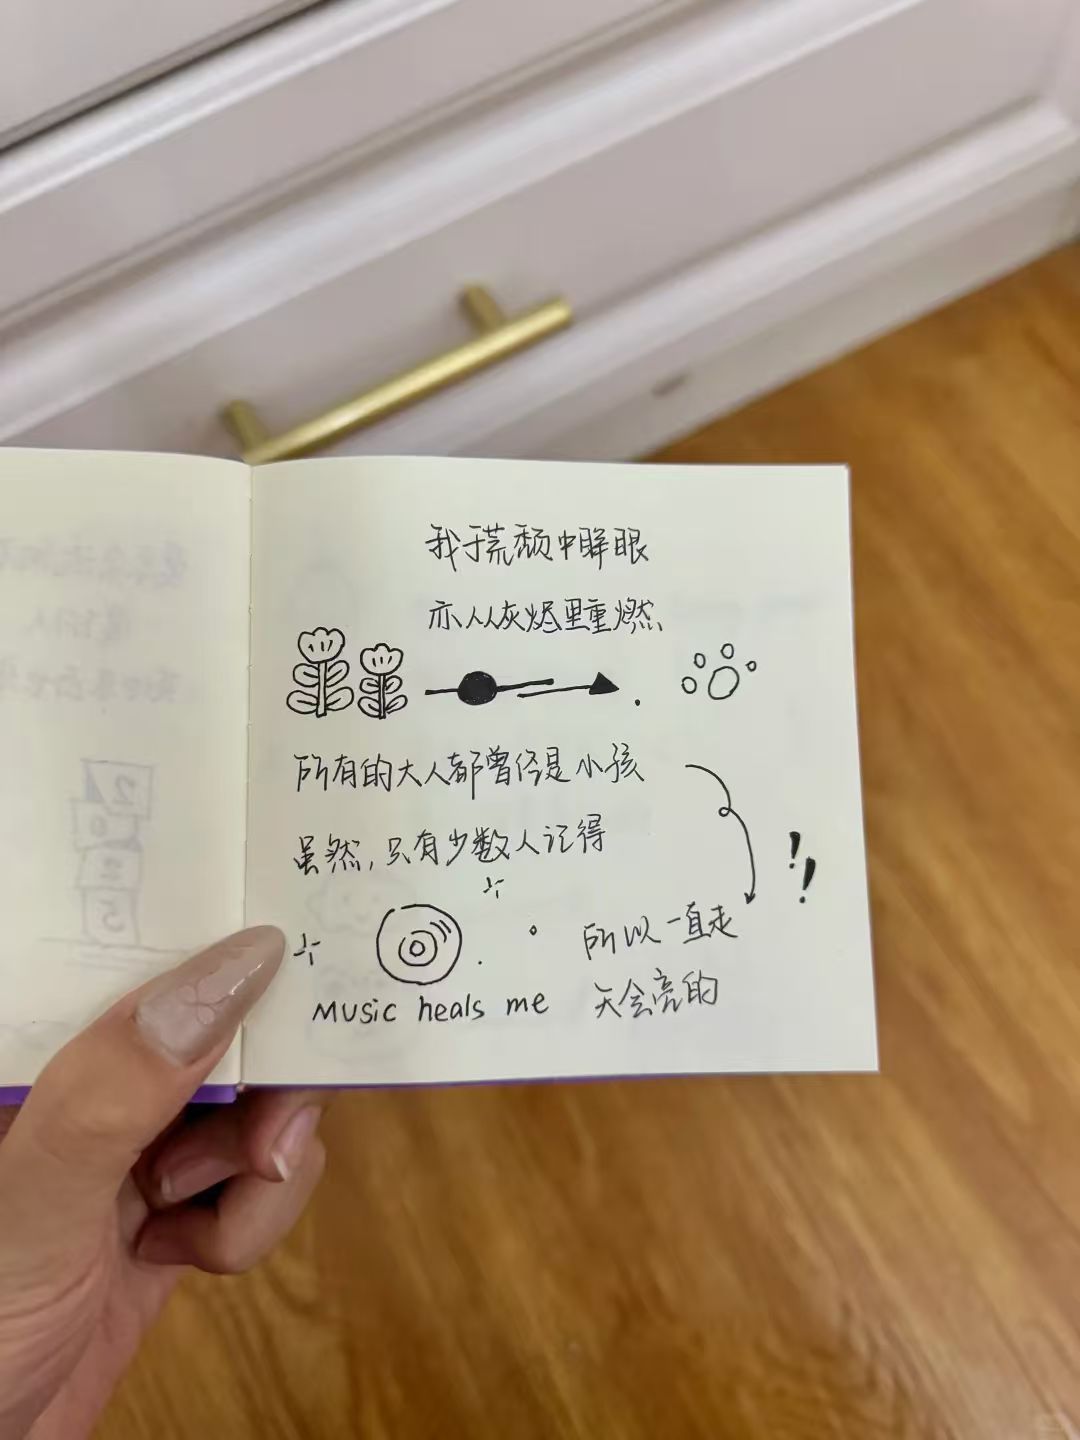 我于荒颓中睁眼
亦从灰烬里重燃
所有的大人都曾经是小孩
虽然,只有少数人记得
所以一直走
天会亮的
Music heals me